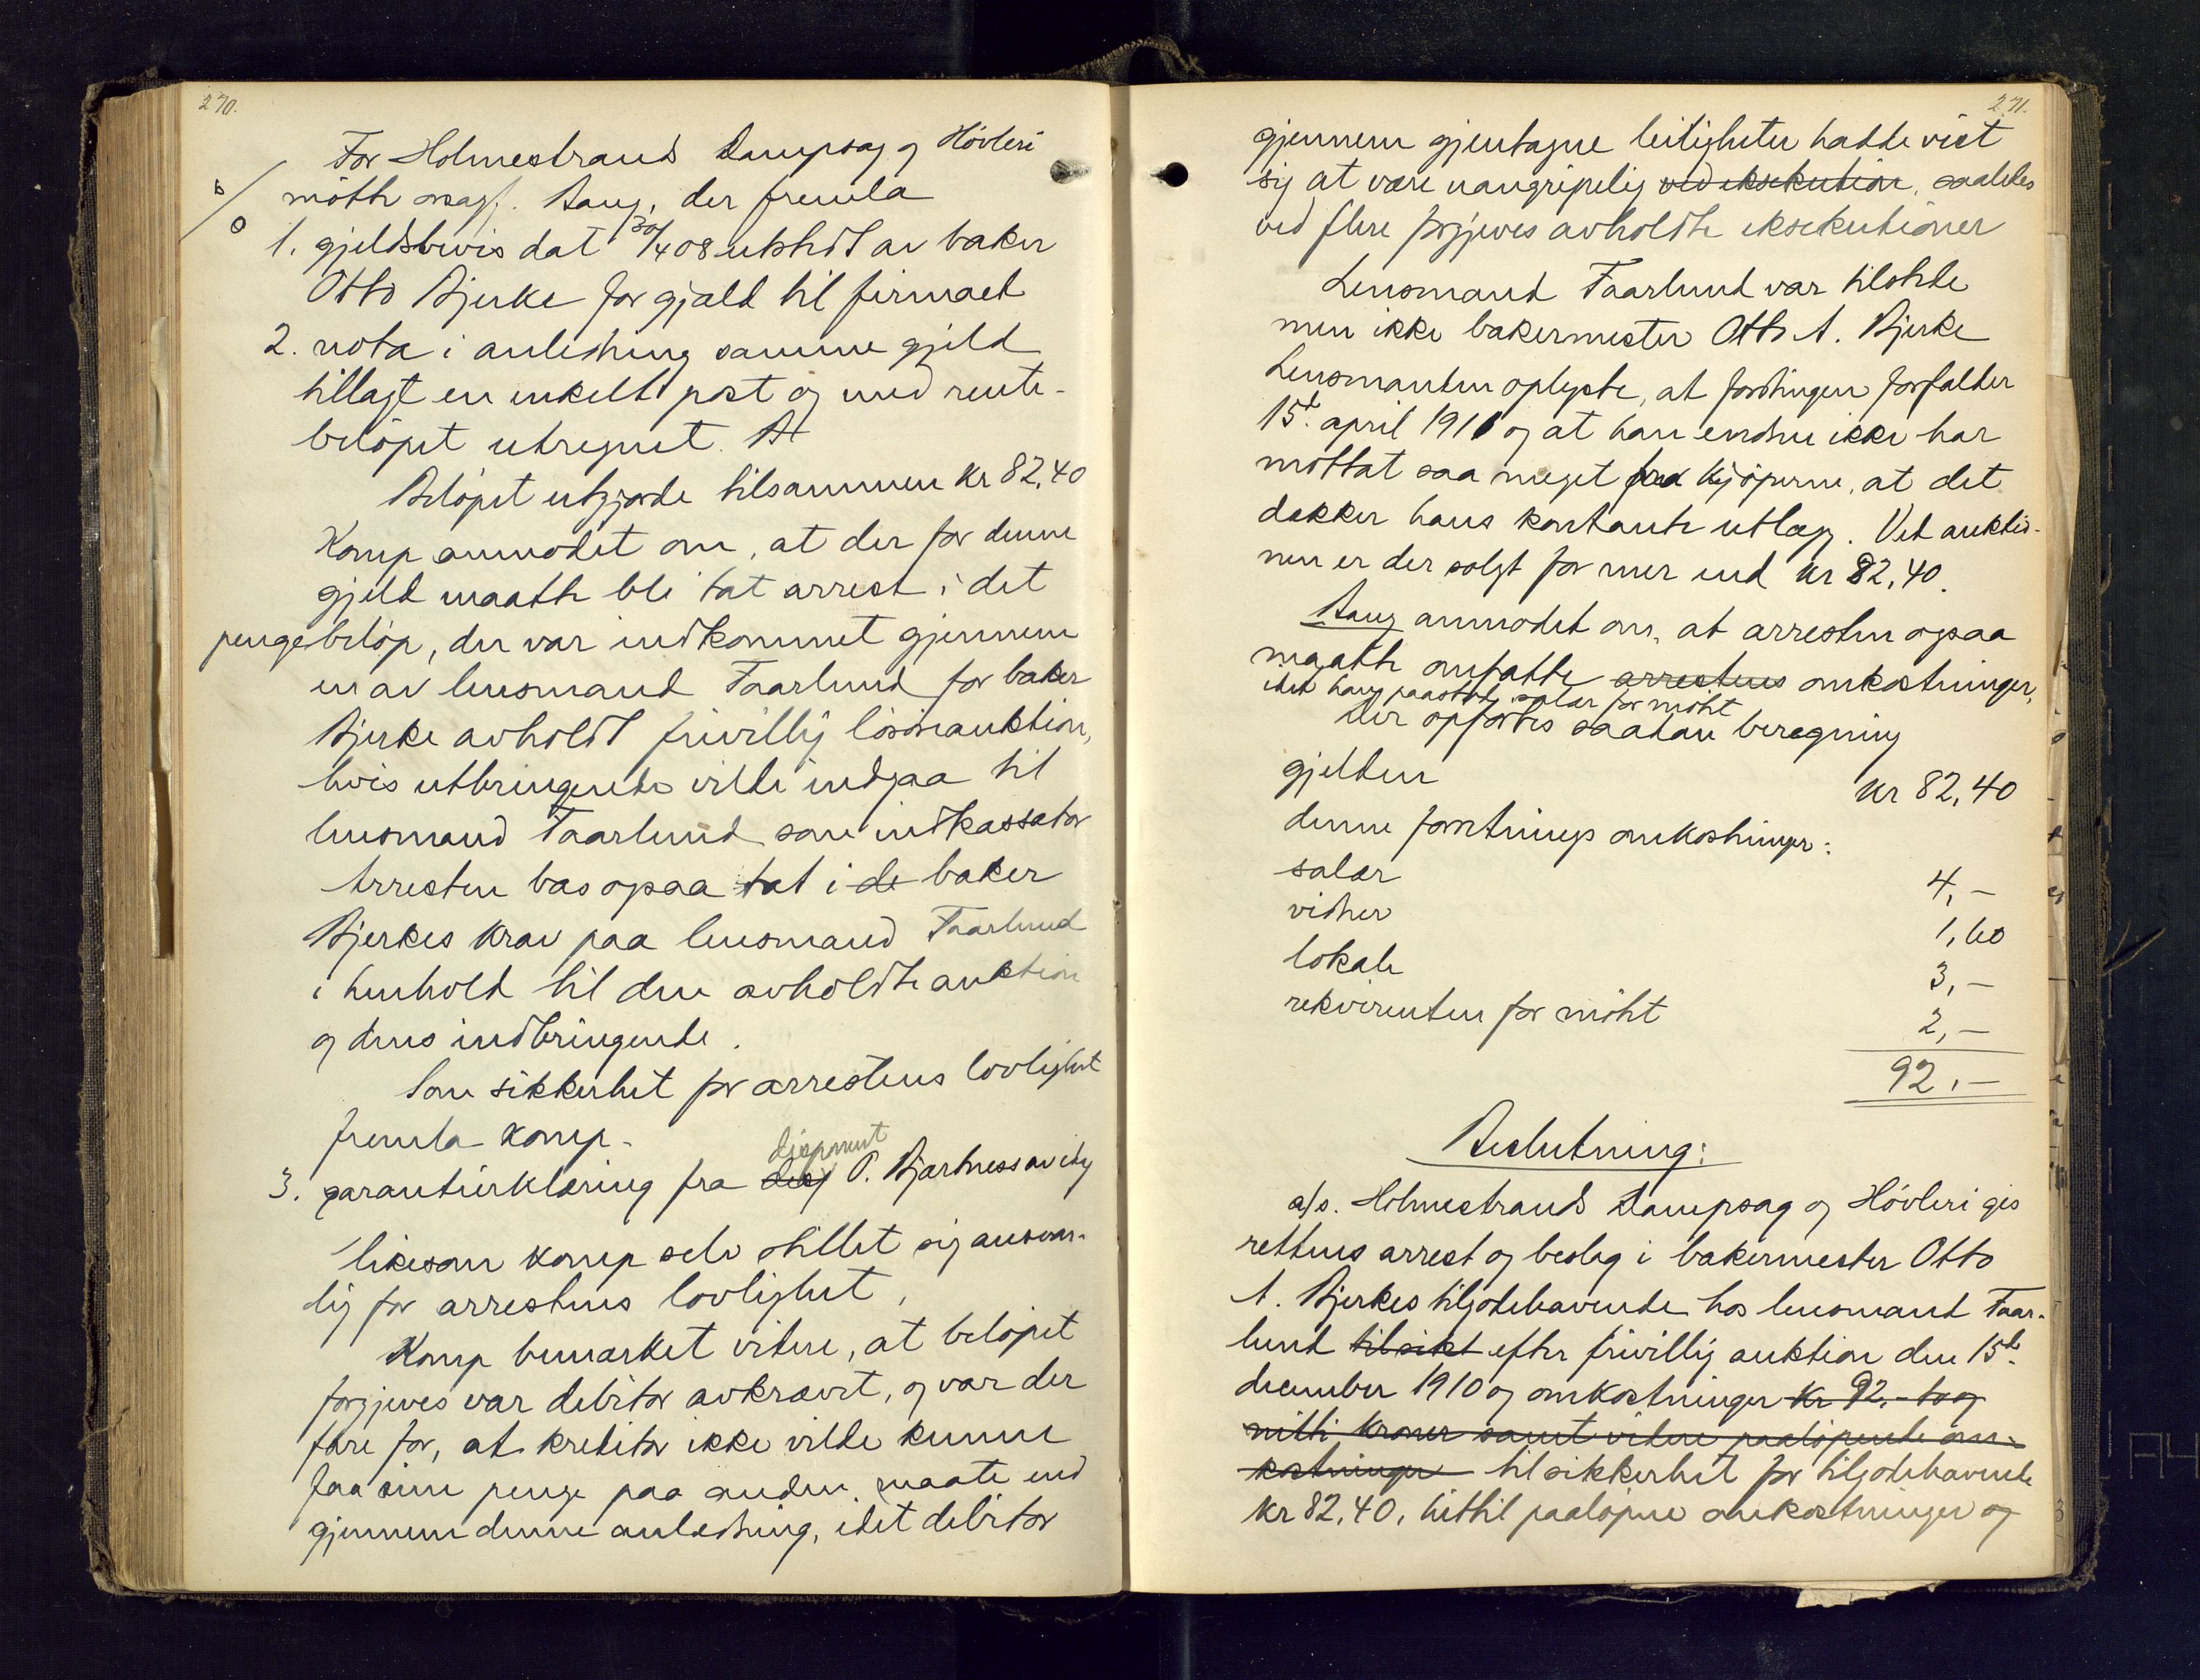 270.
For Holmestrands Dampsag og Høvleri
møtte sagf. Aang, der fremla
1. gjeldsbevis dat 30/4 08 utstedt av baker
Otto Bjerke for gjæld til firmaet
2. nota i anledning samme gjeld
tillagt en enkelt post og med rente-
beløpet utregnet. A
Beløpet utgjorde tilsammen kr 82,40
Komp anmodet om, at der for denne
gjeld maatte bli tat arrest i det
pengebeløp, der var indkommet gjennem
en av lensmand Faarlund for baker
Bjerke avholdt frivillig løsøreauktion,
hvis utbringende vilde indgaa til
lensmand Faarlund som indkassator
Arresten bes ogsaa tat i de baker
Bjerkes krav paa lensmand Faarlund
i henhold til den avholdte auktion
og dens indbringende.
Som sikkerhet for arrestens lovlighet
fremla komp.
disponent
3. garantierklæring fra P. Bjartness av idag
likesom komp selv stillet sig ansvar-
lig for arrestens lovlighet,
Komp bemærket videre, at beløpet
forgjeves var debitor avkrævet, og var der
fare for, at kreditor ikke vilde kunne
faa sine penge paa anden maate end
gjennem denne anledning, idet debitor
271.
gjennem gjentagne leiligheter hadde vist
sig at være uangripelig ved eksekution, saaledes
ved flere forgjeves avholdte eksekutioner
Lensmand Faarlund var tilstede
men ikke bakermester Otto A. Bjerke
Lensmanden oplyste, at fordringen forfalder
15d. april 1911 og at han endnu ikke har
mottat saa meget fra kjøperne, at det
dækker hans kontante utlæg. Ved auktio-
nen er der solgt for mer end kr 82,40.
Aang anmodet om, at arresten ogsaa
maatte omfatte arrestens omkostninger,
idet han paastod salær for møtet
Der opførtes saadan beregning
gjelden kr 82,40
denne forretnings omkostninger:
salær 4,-
vidner 1,60
lokale 3,-
rekvirenten for møtet 2,-
92,-
Beslutning:
a/s. Holmestrands Dampsag og Høvleri gis
rettens arrest og beslag i bakermester Otto
A. Bjerkes tilgodehavende hos lensmand Faar-
lund til sikk efter frivillig auktion den 15de
december 1910 og omkostninger kr 92,- to og
nitti kroner samt videre paaløpende om-
kostninger til sikkerhet for tilgodehavende
kr 82,40, hittil paaløpne omkostninger og